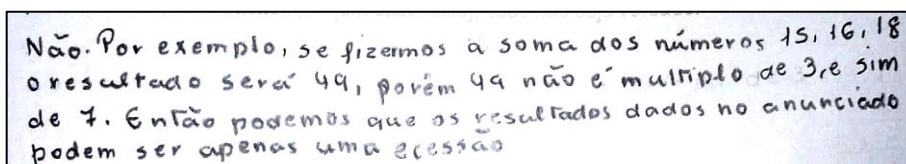 Não. Por exemplo, se fizermos a soma dos números 15, 16, 18
o resultado será 49, porém 49 não é multiplo de 3, e sim
de 7. Então podemos que os resultados dados no anunciado
podem ser apenas uma ecessão